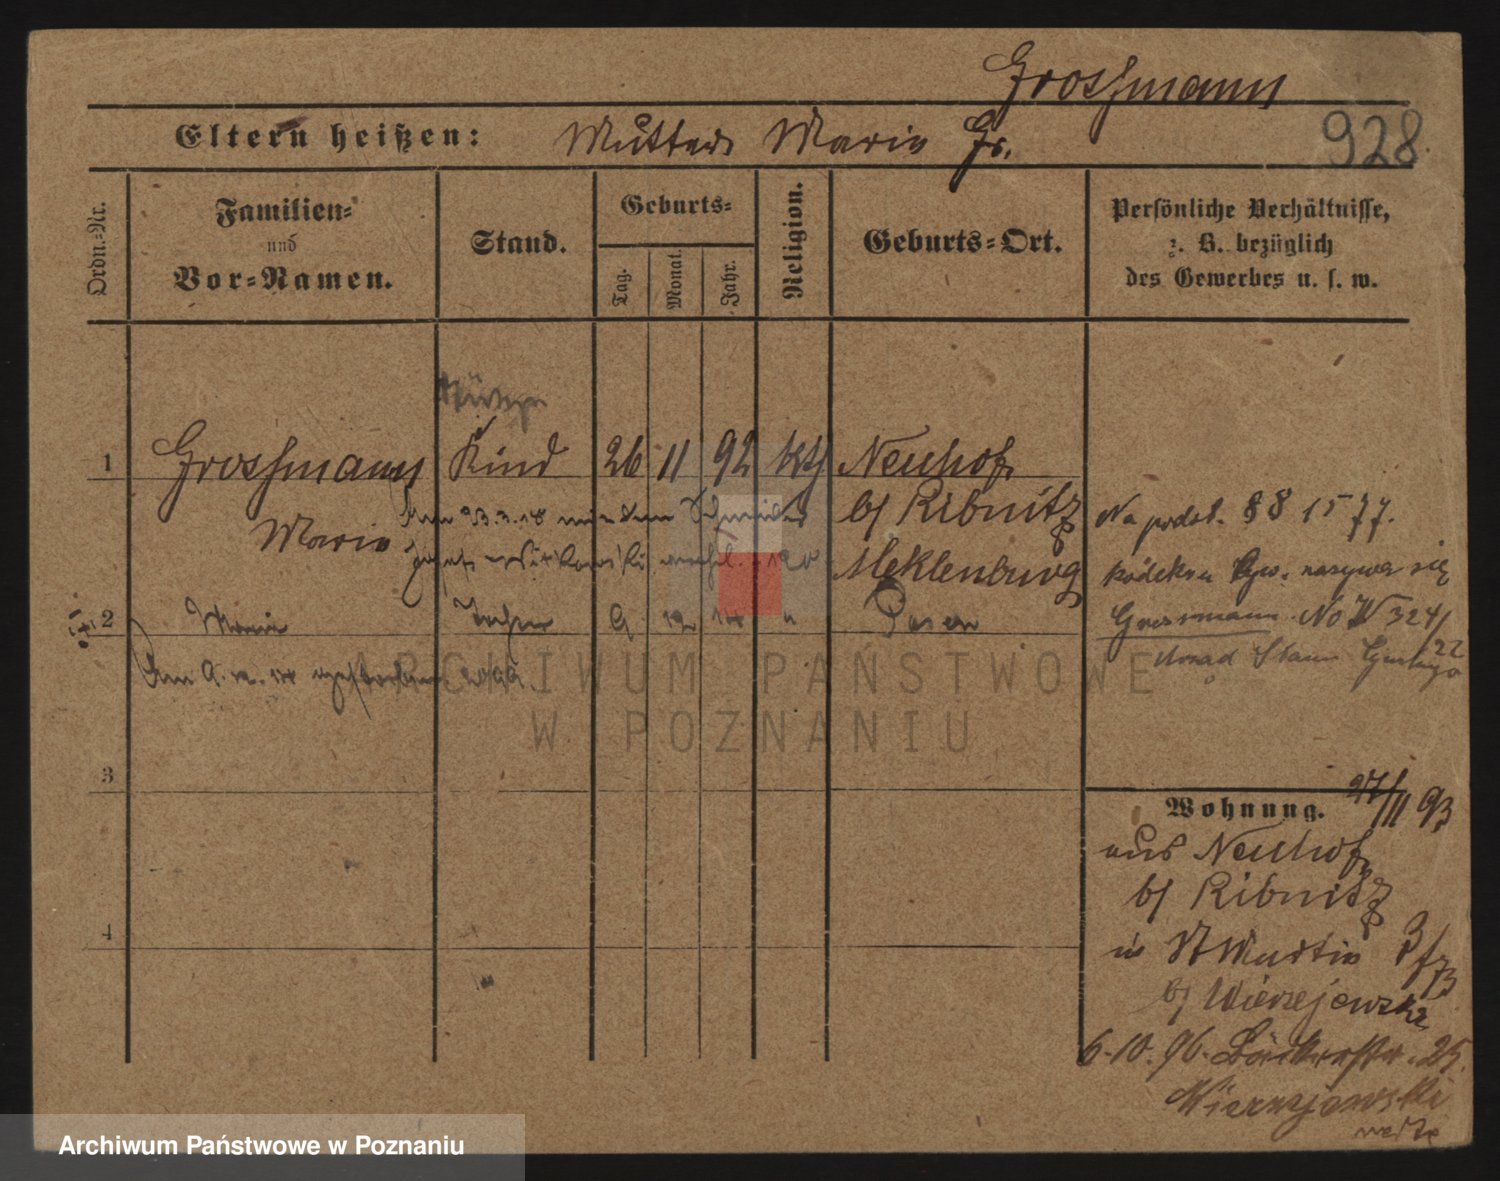 Grossmann
Eltern heißen: Mutter Marie Gr.
928
Ordn.-Nr.
Familien- und Vor-Namen.
Stand.
Geburts-
Tag.
Monat.
Jahr.
Religion.
Geburts-Ort.
Persönliche Verhältnisse,
z. B. bezüglich
des Gewerbes u. s. w.
1 Grossmann Kind 26 11 92 kth Neuhof
Marie
b/ Ribnitz
Meklenburg
Am 23.3.18 mit dem Schneider
Na podst. §§ 1577.
kodeksu Cyw. nazywa się
Grossmann No W 324/22
Urząd Stanu
2 9 12 14 " Posen
Am 9.12.14 gestorben
3
4
Wohnung. 27/11 93
aus Neuhof
b/ Ribnitz
in St Martin
b/ Wierzejewska
6.10.96. Bäckerstr. 25.
Wierzejewski
ARCHIWUM PAŃSTWOWE
W POZNANIU
Archiwum Państwowe w Poznaniu